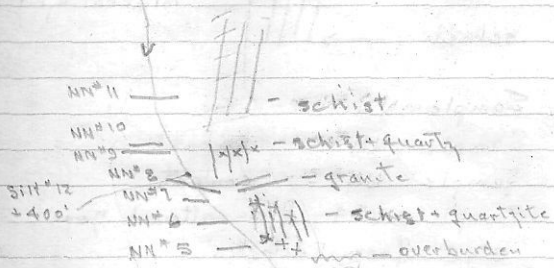 NN#11 - schist
NN#10
NN#9 - schist + quartz
NN#8 - granite
Silt #12 NN#7
+400' NN#6 - schist + quartzite
NN#5 - overburden